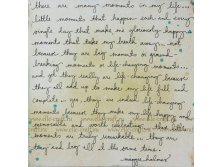 there are many moments in my life...
little moments that happen each and every
single day that make me gloriously happy.
moments that take my breath away. not
because they are big moments or ground
breaking moments or life changing moments...
and yet they really are life changing because
they all add up to make my life full and
complete. yes, they are indeed life changing
moments because they make my life happy and
memorable and worth
moments are truly remarkable... they are
tiny and big all at the same time.
maggie holmes